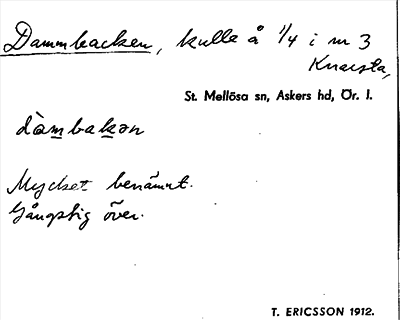 Dammbacken, kulle å 1/4 i m 3
Knaesta,
St. Mellösa sn, Askers hd, Ör. l.
dàmbakən
Mycket benämnt.
Gångstig över.
T. ERICSSON 1912.